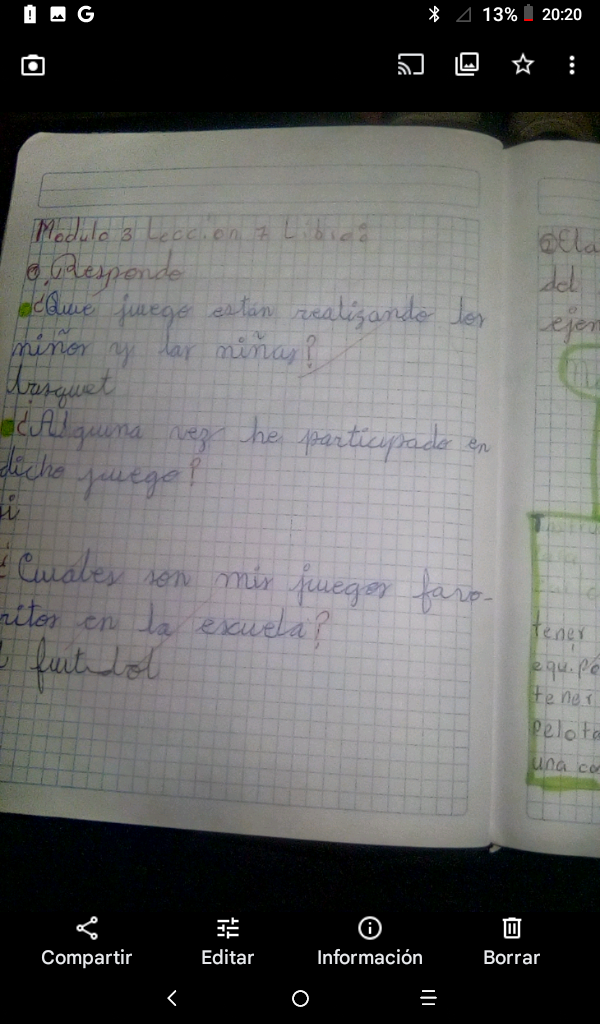 13% 20:20
Modulo 3 Leccion 7 Libro 2
Respondo
¿Qué juego están realizando los
niños y las niñas?
basquet
¿Alguna vez he participado en
dicho juego?
si
¿Cuáles son mis juegos favo-
ritos en la escuela?
l futbol
② Ela
del
ejem
tener
equipo
tener
pelota
una ca
Compartir Editar Información Borrar